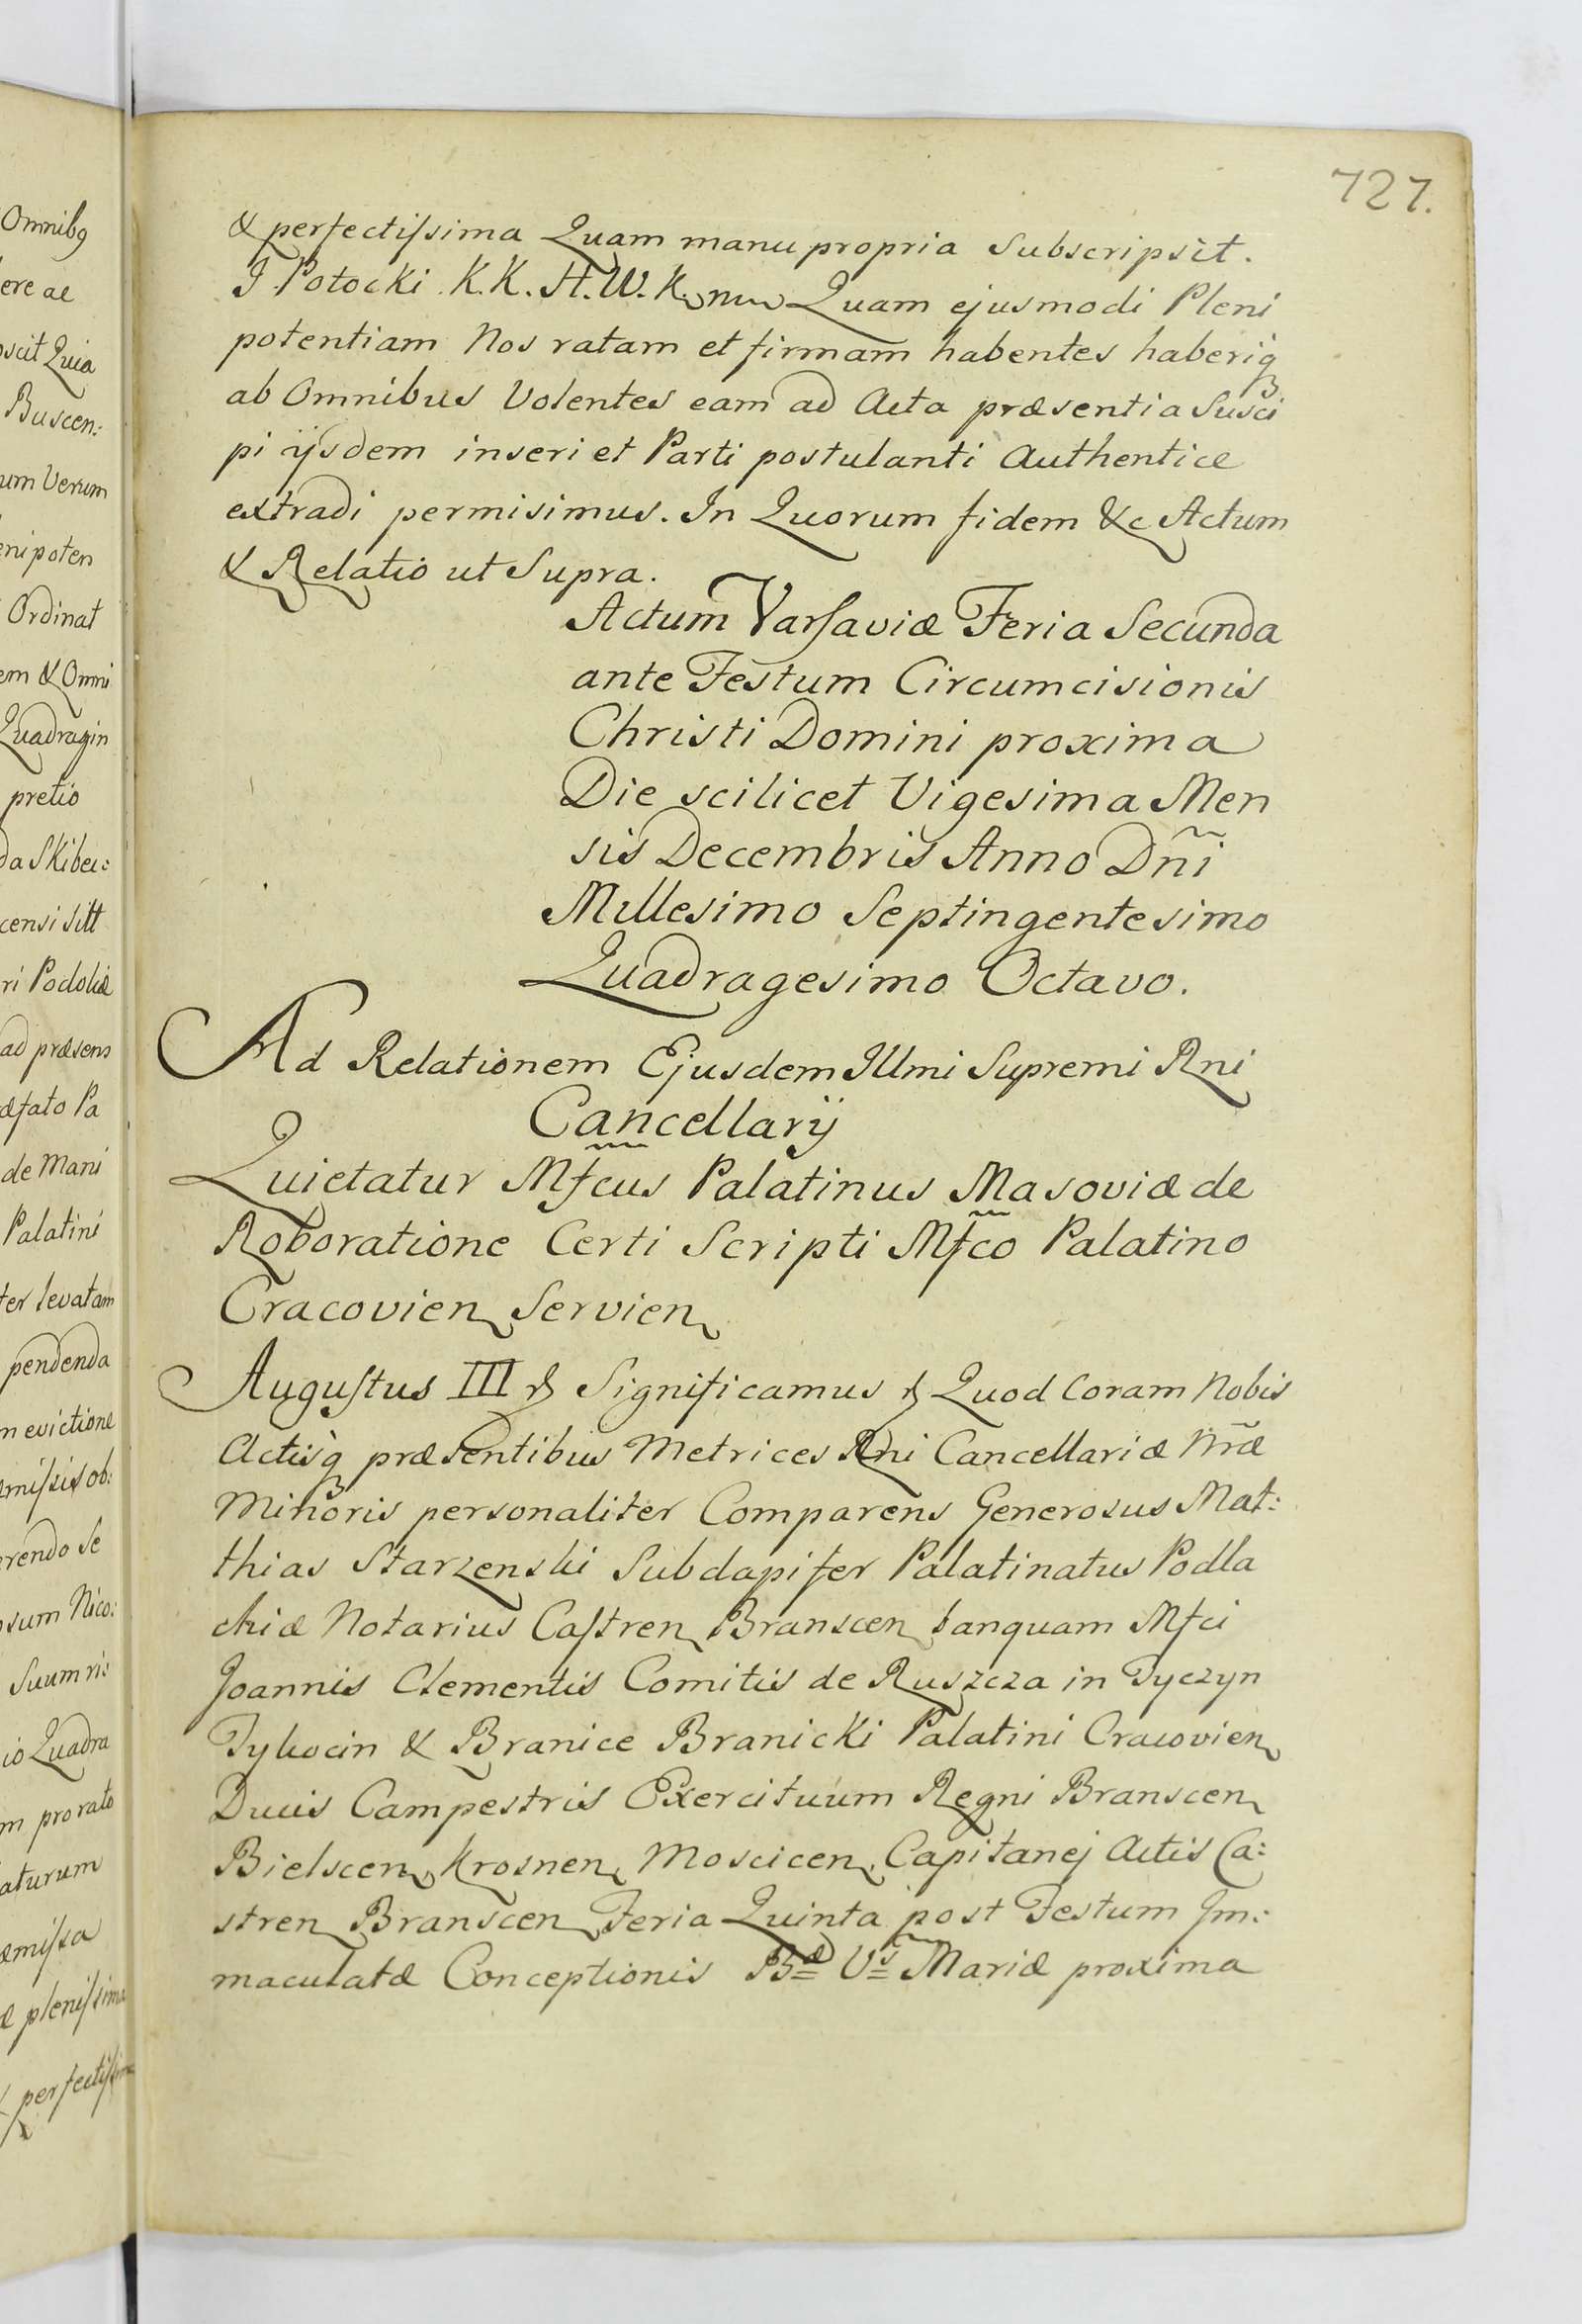 727.
& perfectissima Quam manu propria Subscripsit.
J Potocki K.K. H.W.K. mm Quam ejusmodi Pleni
potentiam Nos ratam et firmam habentes haberiq
ab Omnibus Volentes eam ad Acta præsentia Susci
pi ijsdem inseri et Parti postulanti Authentice
extradi permisimus. In Quorum fidem &c Actum
& Relatio ut Supra.
Actum Varsaviæ Feria Secunda
ante Festum Circumcisionis
Christi Domini proxima
Die scilicet Vigesima Men
sis Decembris Anno Dñi
Millesimo Septingentesimo
Quadragesimo Octavo.
Ad Relationem Ejusdem Illmi Supremi Rni
Cancellarij
Quietatur Mfcus Palatinus Masoviæ de
Roboratione Certi Scripti Mfco Palatino
Cracovien Servien
Augustus III & Significamus & Quod Coram Nobis
Actisq præsentibus Metrices Rni Cancellariæ Nr̃æ
Minoris personaliter Comparens Generosus Mat:
thias Starzenski Subdapifer Palatinatus Podla
chiæ Notarius Castren Branscen tanquam Mfci
Joannis Clementis Comitis de Ruszcza in Tyczyn
Tykocin & Branice Branicki Palatini Cracovien
Ducis Campestris Exercituum Regni Branscen
Bielscen Krosnen Moscicen Capitanej Actis Ca:
stren Branscen Feria Quinta post Festum Im:
maculatæ Conceptionis Bæ Vs Mariæ proxima
Omnib9
ere ac
oscit Quia
Buscen:
um Verum
enipoten
Ordinat
em & Omni
Quadragin
pretio
da Skibec:
censi Sitt
ri Podoliæ
ad præsens
æfato Pa
de Mani
Palatini
ter levatam
pendenda
m evictione
æmissis ob:
rendo Se
osum Nico:
Suum ris
io Quadra
m pro rato
aturum
æmissa
æ plenissima
& perfectissima